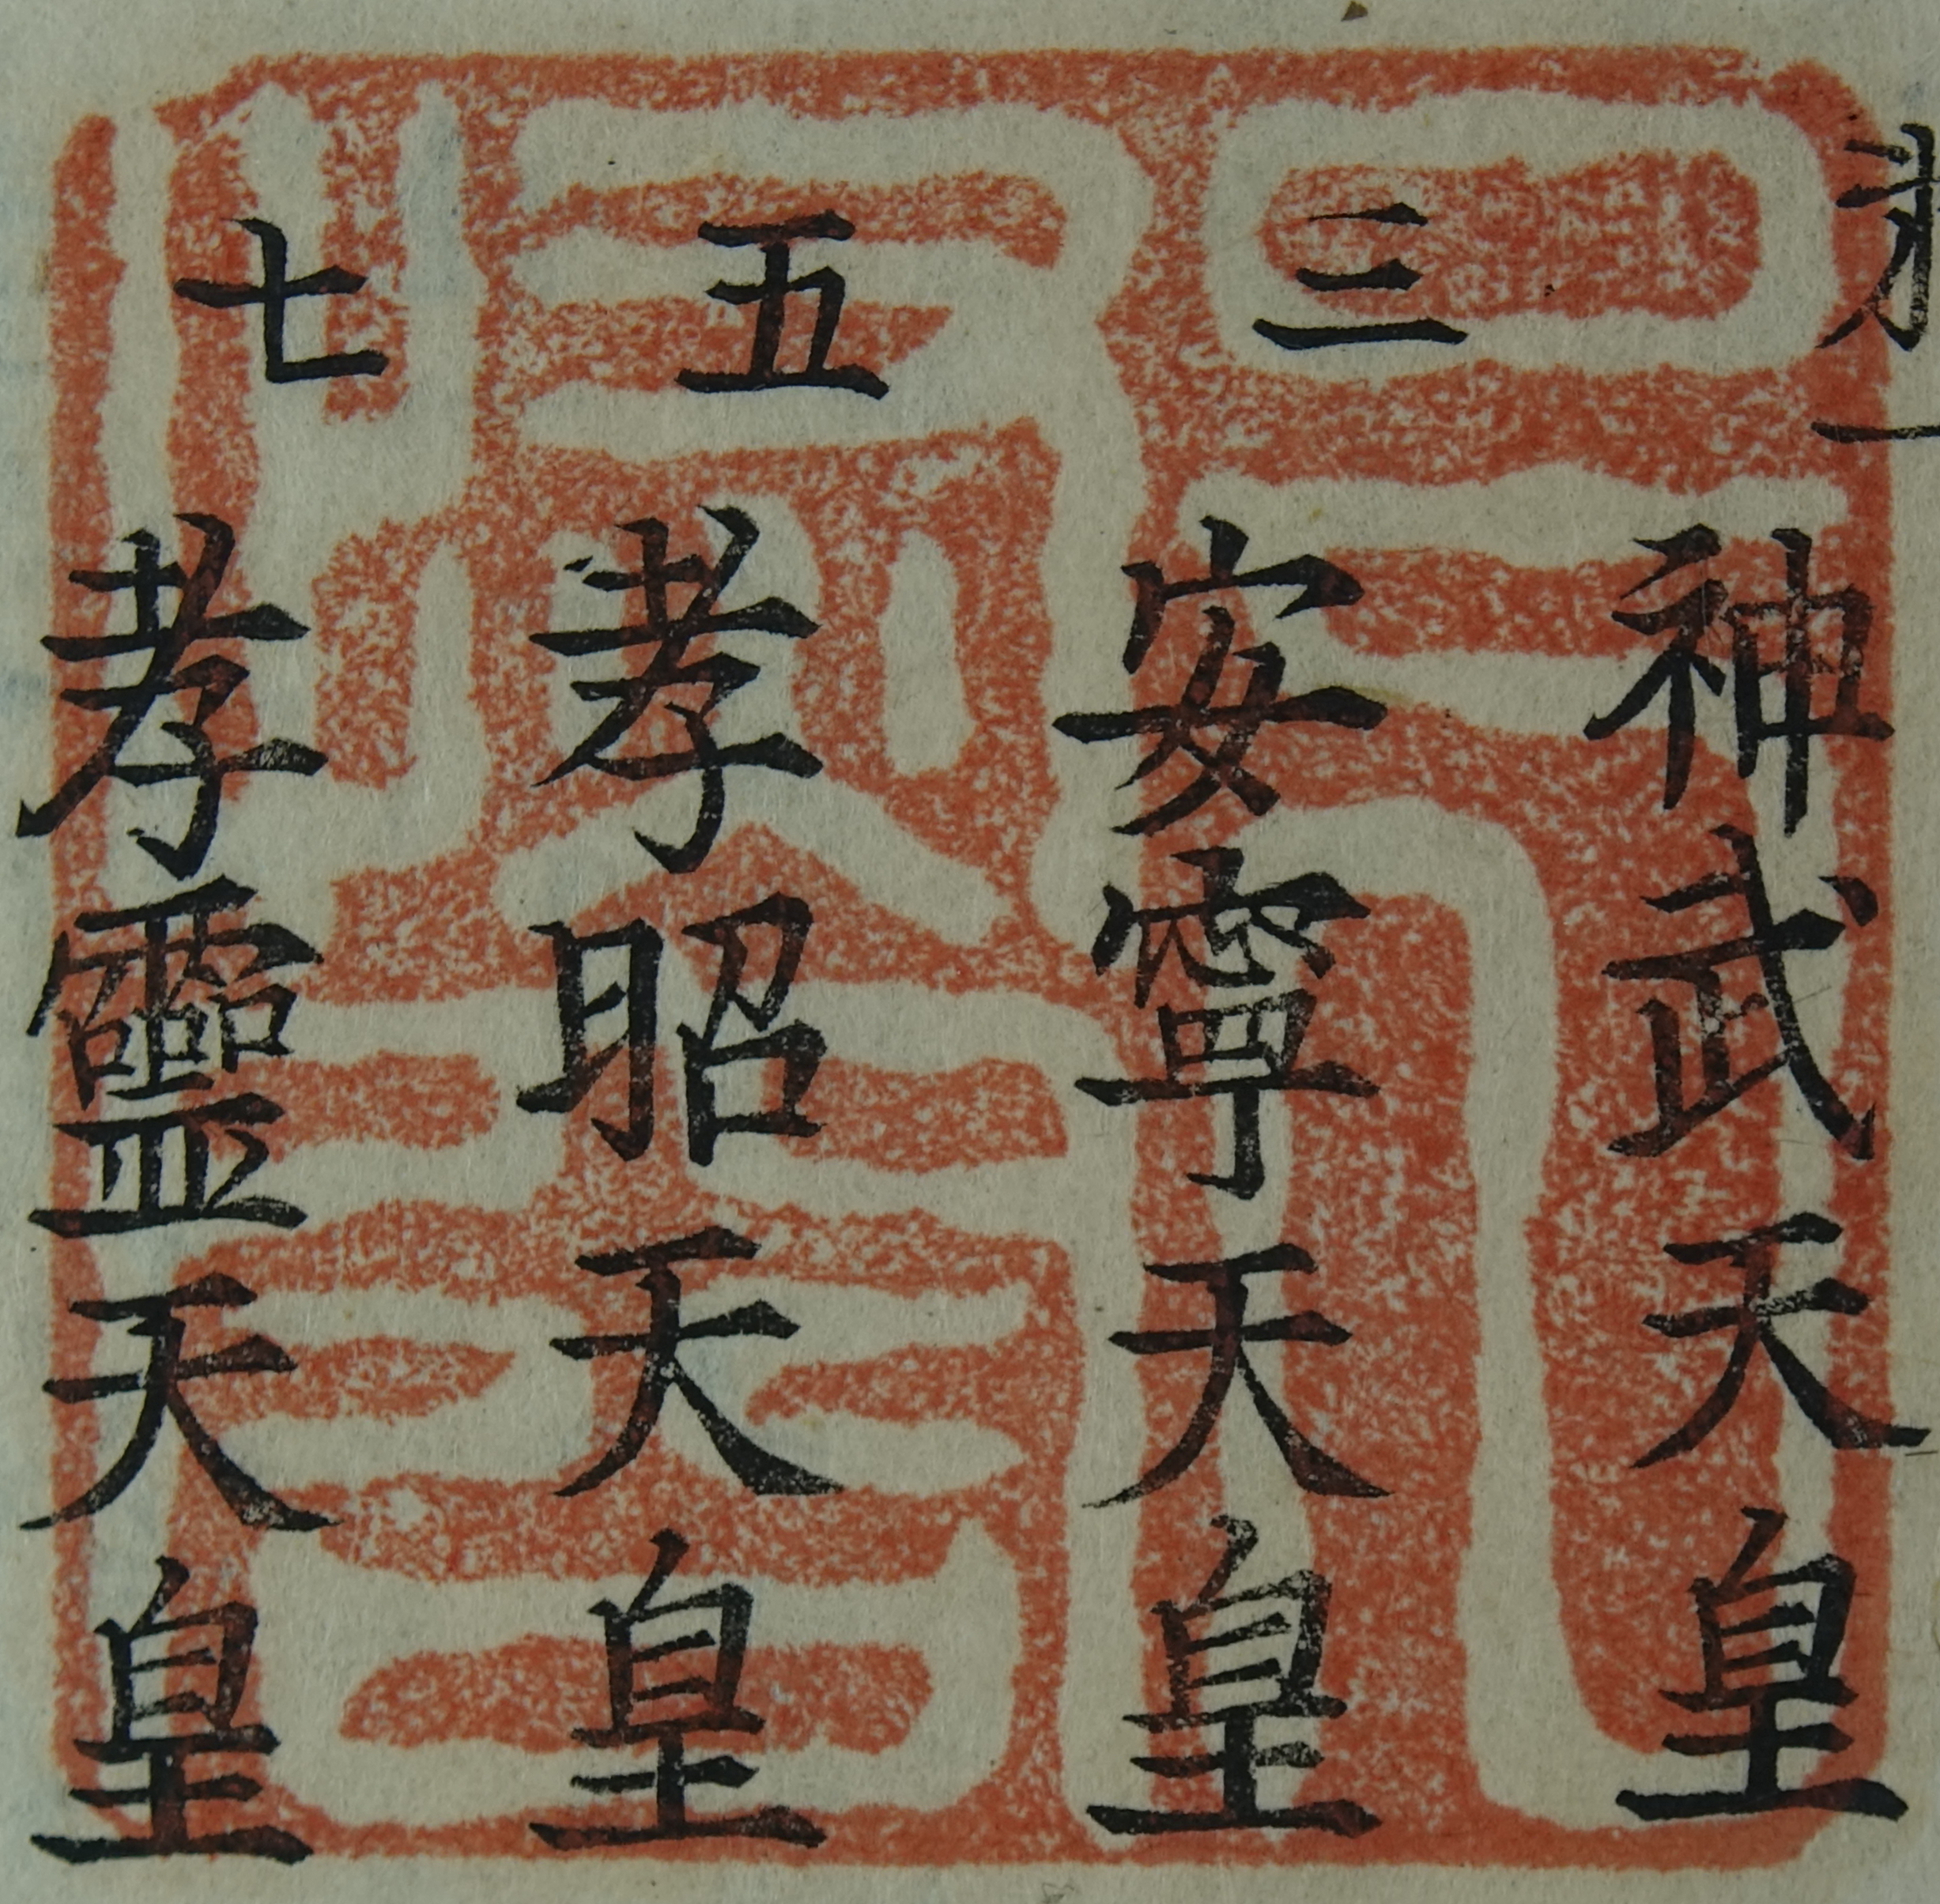 神武天皇
三 安寧天皇
五 孝昭天皇
七 孝靈天皇